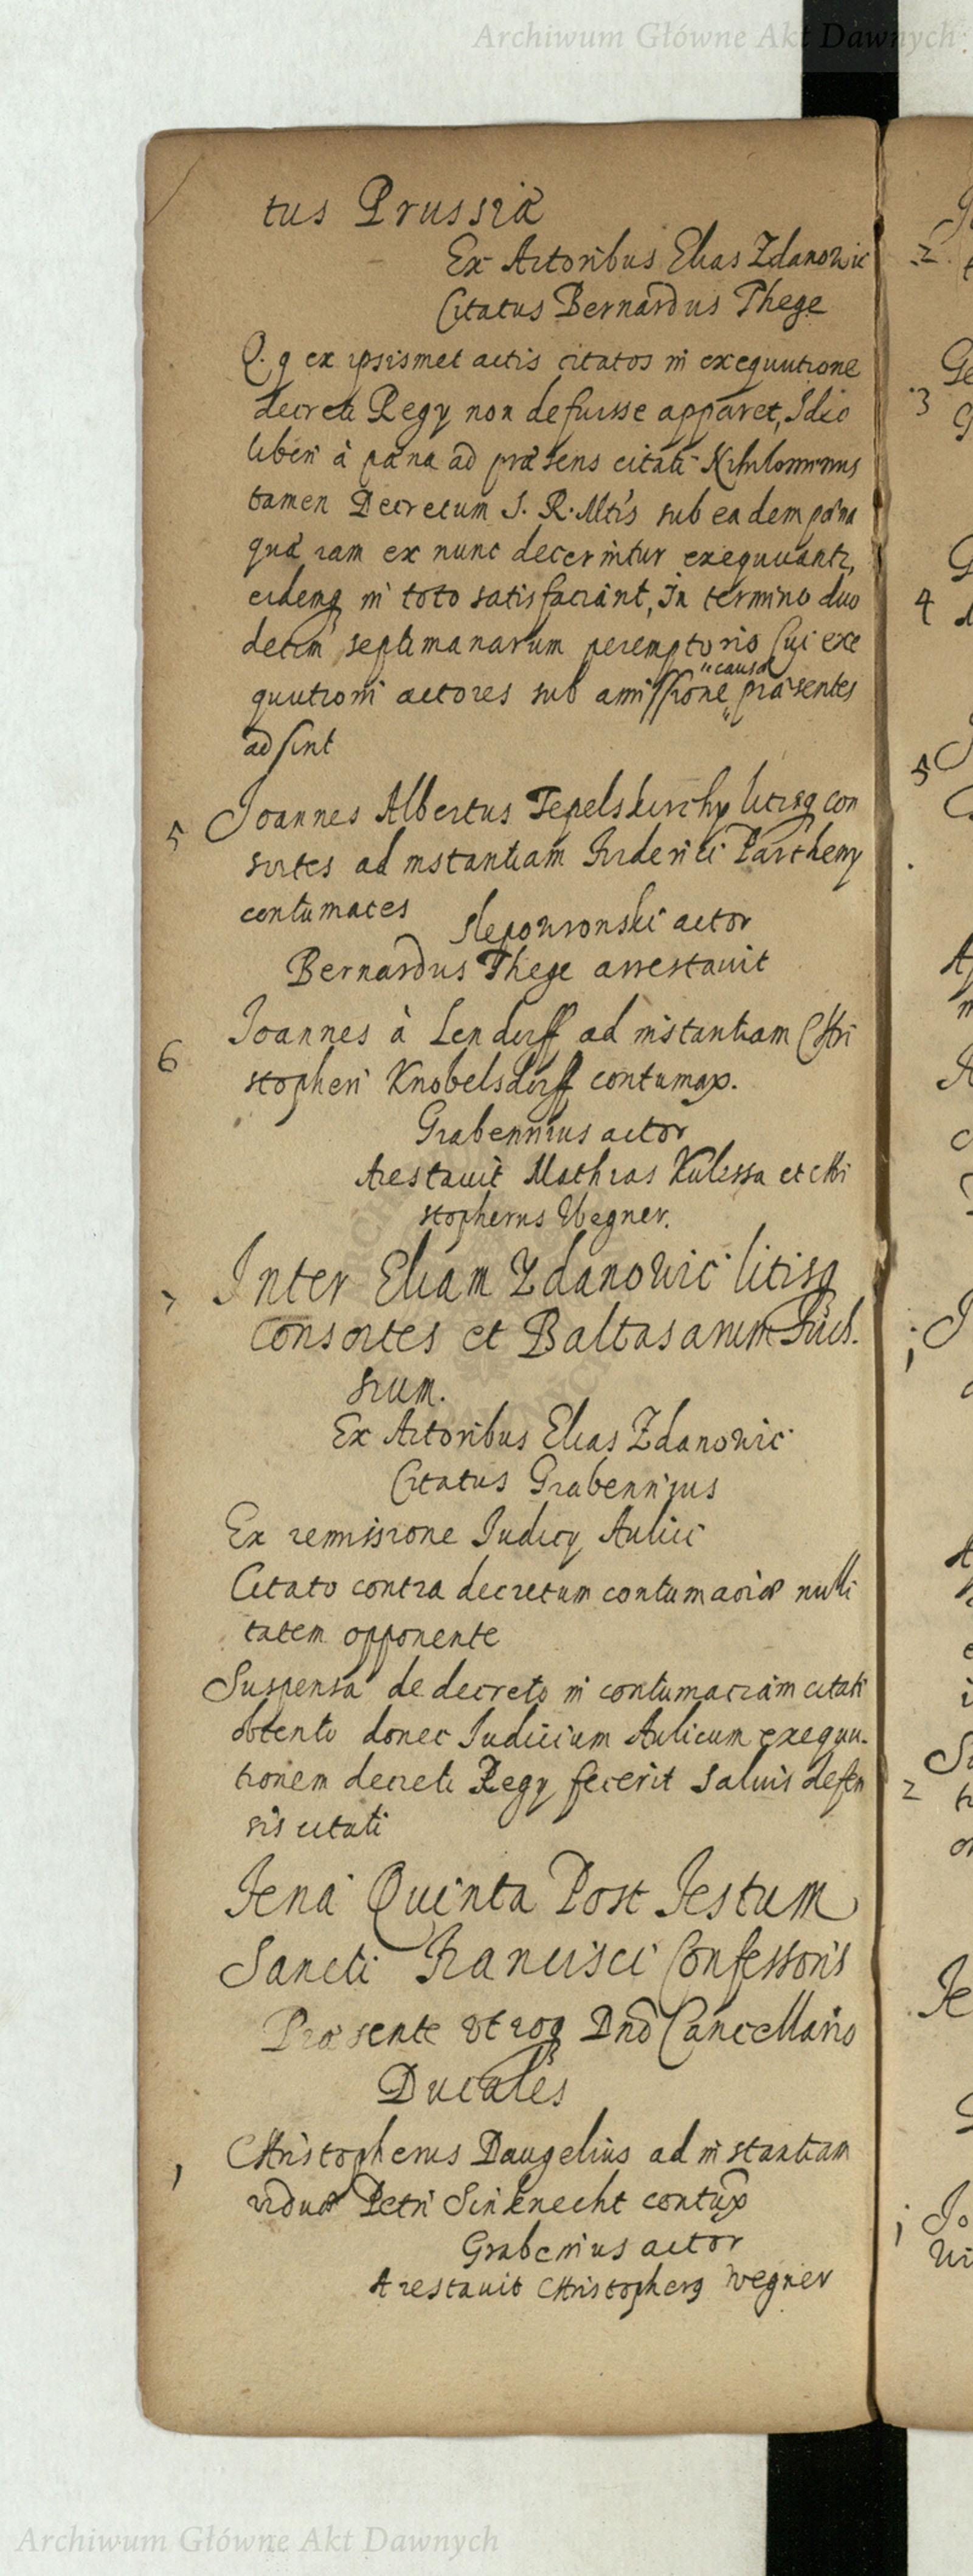 Archiwum Główne Akt Dawnych
tus Prussiæ
Ex Actoribus Elias Zdanowic
Citatus Bernardus Thege
Q. q ex ipsismet actis citatos in exequutione
decreti Regy non defuisse apparet, Ideo
liberi à pæna ad præsens citati Nihilominus
tamen Decretum S. R. Mtis sub eadem pæna
quæ iam ex nunc decernitur exequuantr,
eidemq in toto satisfaciant, In termino duo
decim septimanarum peremptorio Cui exe
quutioni actores sub amissione "causæ" præsentes
adsint
5 Joannes Albertus Tepelskirchy litisq con
sortes ad instantiam Friderici Partheny
contumaces Slepowronski actor
Bernardus Thege arrestauit
6 Joannes à Lendorff ad instantiam Chri
stopheri Knobelsdorff contumax.
Grabennius actor
Arestauit Mathias Kulessa et Chri
stopherus Wegner.
7 Inter Eliam Zdanowic litisq
consortes et Baltasarum Fuch.
sium.
Ex Actoribus Elias Zdanowic
Citatus Grabennius
Ex remissione Iudicy Aulici
Citato contra decretum contumaciæ nulli
tatem opponente
Suspensa de decreto in contumaciam citati
obtento donec Iudicium Aulicum exequu-
tionem decreti Regy fecerit saluis defen
sis citati
Feria Quinta Post Festum
Sancti Francisci Confessoris
Præsente utroq Dno Cancellario
Ducales
1 Christopherus Daugelius ad instantiam
viduæ Petri Sinknecht contux
Grabenius actor
Arestauit Christopherq Wegner
Archiwum Główne Akt Dawnych